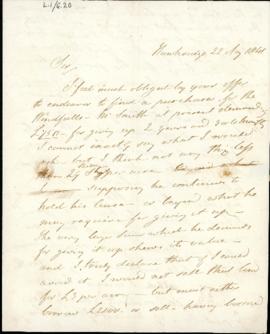 L.1/6.20
22 Aug 1841
Sir,
I feel much obliged by your offer
to endeavor to find a purchaser for the
Windfalls. Mr Smith at present demands
£750 - for giving up 2 years and
I cannot exactly say what I would
ask but I think not any thing less
than per acre
supposing he continues to
hold his lease - or layout what he
may require for giving it up -
The very large sum which he demands
for giving it up shows its value -
and I truly declare that if I could
avoid it I would not sell this land
for £3 per acre but must either
borrow or sell - having